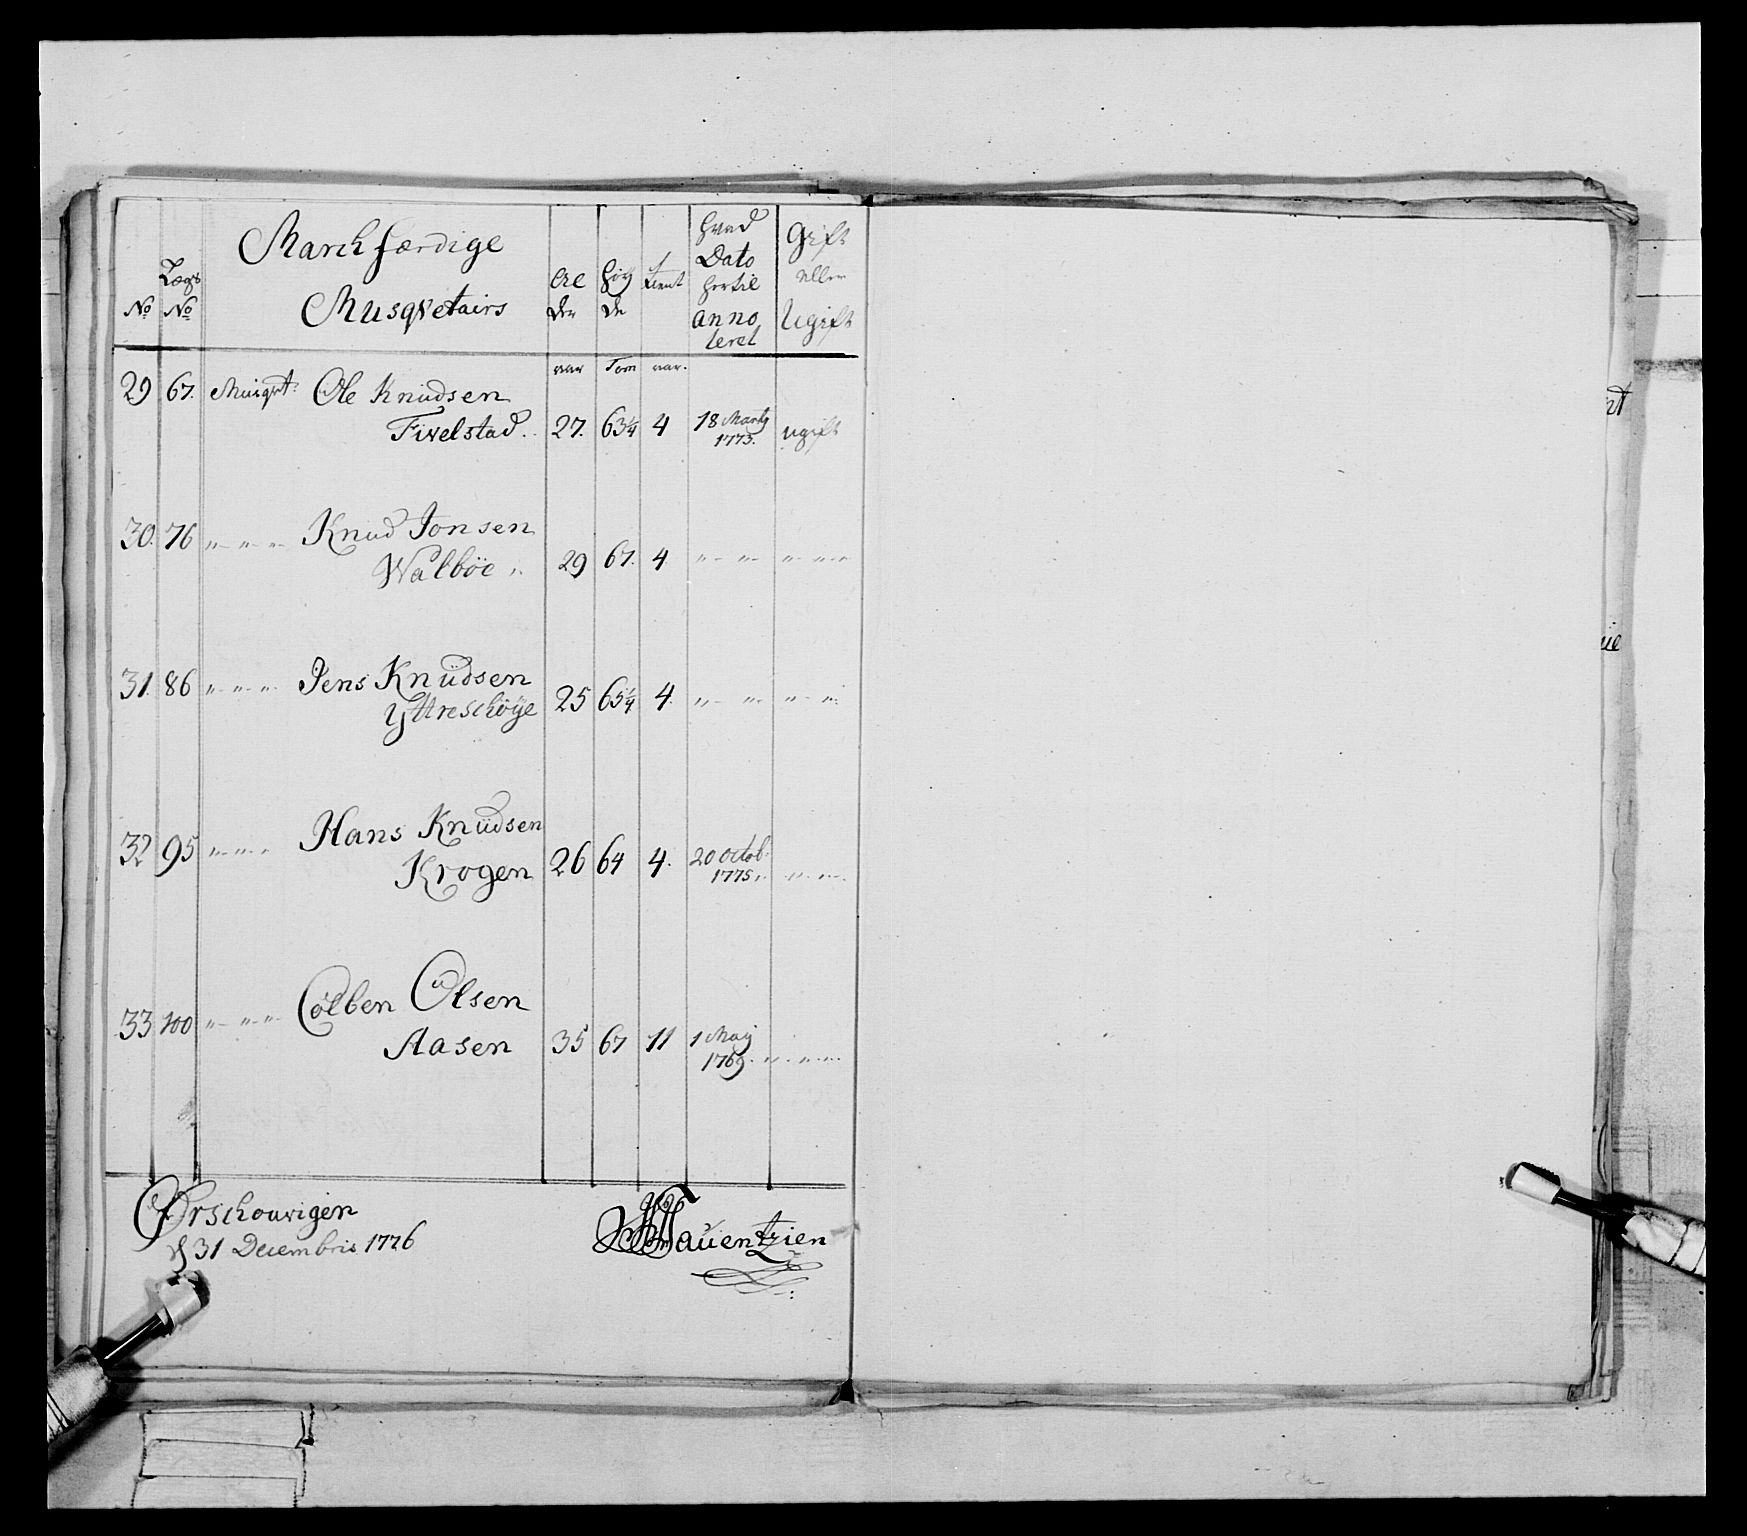 No Lægs No March færdige Musqvetairs Alder Høyde Tient hvad Dato hertil annoteret Gift eller Ugift
aar Tom aar.
29 67. Musqvt: Ole Knudsen
Fivelstad. 27. 63¼ 4 18 Marty 1773. ugift
30. 76 " " " Knud Jonsen
Walbøe 29 67. 4 " " " " "
31. 86 " " " Jens Knüdsen
Yttreschöÿe 25 65¼ 4. " " " "
32 95 " " " Hans Knüdsen
Krogen 26 64 4. 20 Octob: 1775 " " "
33 100 " " " Colben Olsen
Aasen 35 67 11 1 Maÿ 1769. " " "
Ørschouvigen
d 31 Decembris 1776
Tauentzien